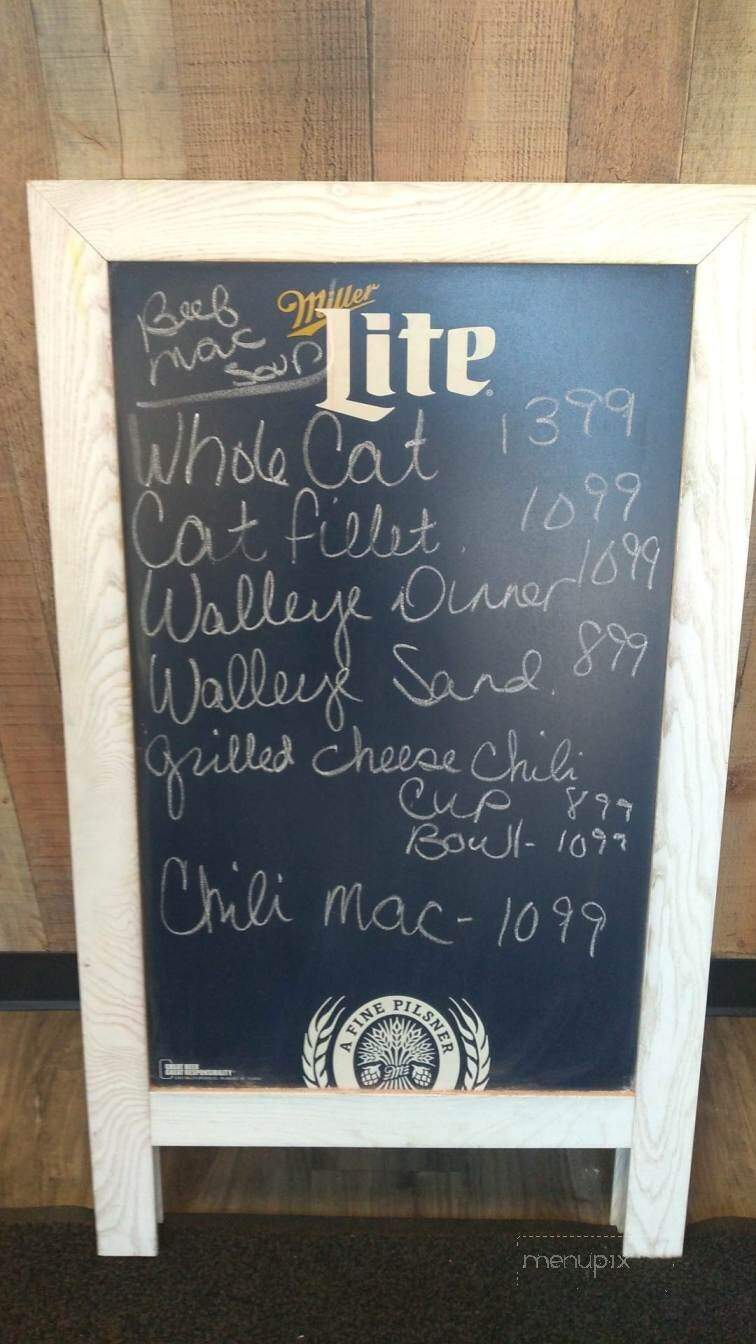 Beef
Mac
Soup
Miller
Lite
Whole Cat 1399
Cat fillet 1099
Walleye Dinner 1099
Walleye Sand. 899
grilled cheese Chili
Cup 899
Bowl- 1099
Chili Mac- 1099
A FINE PILSNER
GREAT BEER
GREAT RESPONSIBILITY
menupix